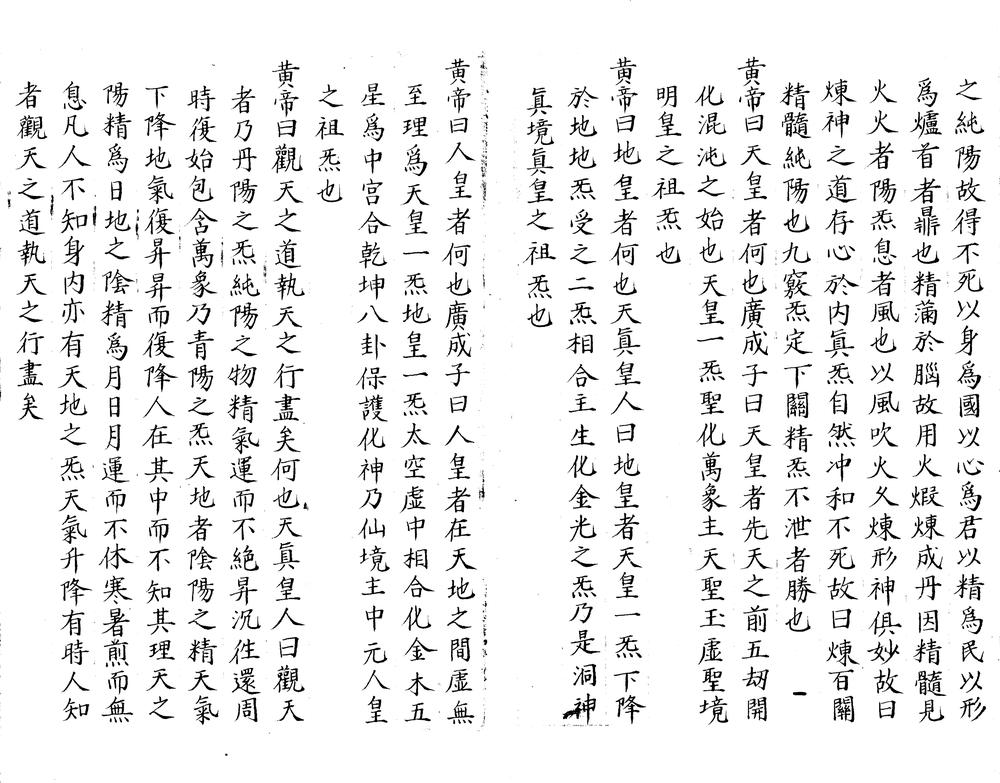 之純陽故得不死以身爲國以心爲君以精爲民以形
爲爐首者鼎也精滿於腦故用火煅煉成丹因精髓見
火火者陽炁息者風也以風吹火久煉形神俱妙故曰
煉神之道存心於内眞炁自然冲和不死故曰煉百關
精髓純陽也九竅炁定下關精炁不泄者勝也
黄帝曰天皇者何也廣成子曰天皇者先天之前五刼開
化混沌之始也天皇一炁聖化萬象主天聖玉虛聖境
明皇之祖炁也
黄帝曰地皇者何也天眞皇人曰地皇者天皇一炁下降
於地地炁受之二炁相合主生化金光之炁乃是洞神
眞境眞皇之祖炁也
黄帝曰人皇者何也廣成子曰人皇者在天地之間虛無
至理爲天皇一炁地皇一炁太空虛中相合化金木五
星爲中宮合乾坤八卦保護化神乃仙境主中元人皇
之祖炁也
黄帝曰觀天之道執天之行盡矣何也天眞皇人曰觀天
者乃丹陽之炁純陽之物精氣運而不絶昇沉徃還周
時復始包含萬象乃青陽之炁天地者陰陽之精天氣
下降地氣復昇昇而復降人在其中而不知其理天之
陽精爲日地之陰精爲月日月運而不休寒暑煎而無
息凡人不知身内亦有天地之炁天氣升降有時人知
者觀天之道執天之行盡矣